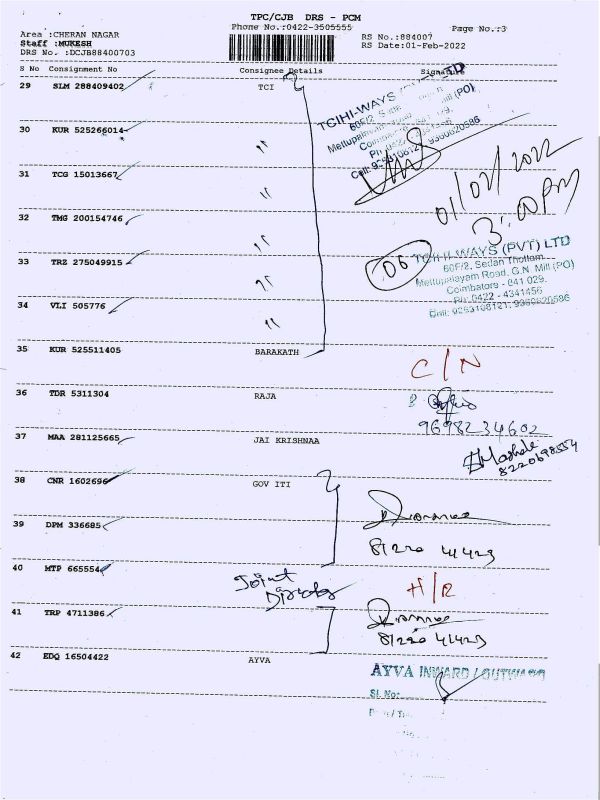 TPC/CJB DRS - PCM
Phone No.:0422-3505555
Page No.:3
Area :CHERAN NAGAR
RS No.:884007
Staff :MUKESH
RS Date:01-Feb-2022
DRS No. :DCJB88400703
S No Consignment No Consignee Details Signature
29 SLM 288409402 TCI
TCIHI-WAYS LTD
60F/2,
Mill (PO)
30 KUR 525266014 ,,
01/02/2022
3:00 PM
31 TCG 15013667 ,,
32 TMG 200154746 ,,
06
TCIHI-WAYS (PVT) LTD
60F/2, Sedan Thottam
Mettupalayam Road, G.N. Mill (PO)
Coimbatore - 641 029.
Ph: 0422 - 4341456
33 TRZ 275049915 ,,
34 VLI 505776 ,,
35 KUR 525511405 BARAKATH C/N
36 TDR 5311304 RAJA
9698234602
37 MAA 281125665 JAI KRISHNAA
8220698554
38 CNR 1602696 GOV ITI
39 DPM 336685
81220 41423
40 MTP 665554 Joint H/R
41 TRP 4711386
81220 41423
42 EDQ 16504422 AYVA
AYVA INWARD / OUTWARD
Sl. No: